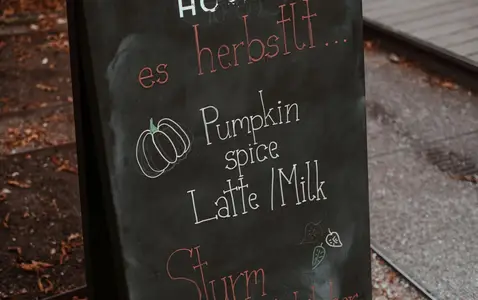 es herbstlt...
Pumpkin
spice
Latte/Milk
Sturm